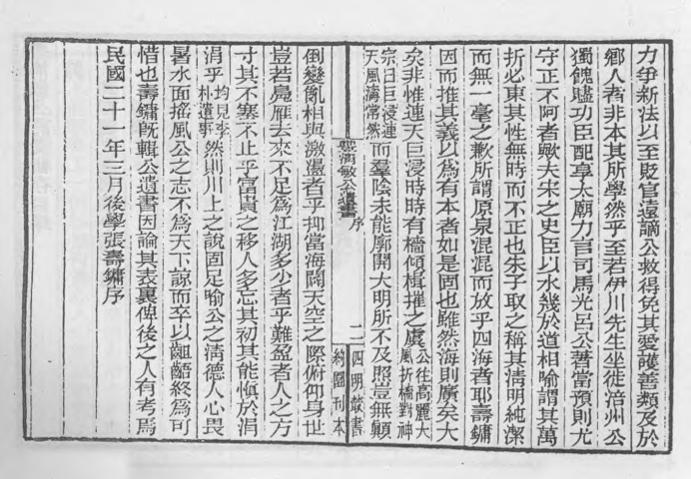 力爭新法以至貶官遠謫公救得免其愛護善類及於
鄉人者非本其所學然乎至若伊川先生坐徙涪州公
獨餽贐功臣配享太廟力言司馬光呂公著當預則尤
守正不阿者歟夫宋之史臣以水幾於道相喻謂其萬
折必東其性無時而不正也朱子取之稱其淸明純潔
而無一毫之歉所謂原泉混混而放乎四海者耶壽鏞
因而推其義以爲有本者如是固也雖然海則廣矣大
矣非惟連天巨浸時時有檣傾楫摧之虞公往高麗大風折檣對神
宗曰巨浸連天風濤常然而羣陰未能廓開大明所不及照豈無顚
豐淸敏公遺書 序 二 四明叢書 約園刊本
倒變亂相與激盪者乎抑當海闊天空之際俯仰身世
豈若鳧雁去來不足爲江湖多少者乎難盈者人之方
寸其不塞不止乎富貴之移人多忘其初其能愼於涓
涓乎均見李朴遺事然則川上之說固足喻公之淸德人心畏
暑水面搖風公之志不爲天下諒而卒以齟齬終爲可
惜也壽鏞旣輯公遺書因論其表裏俾後之人有考焉
民國二十一年三月後學張壽鏞序